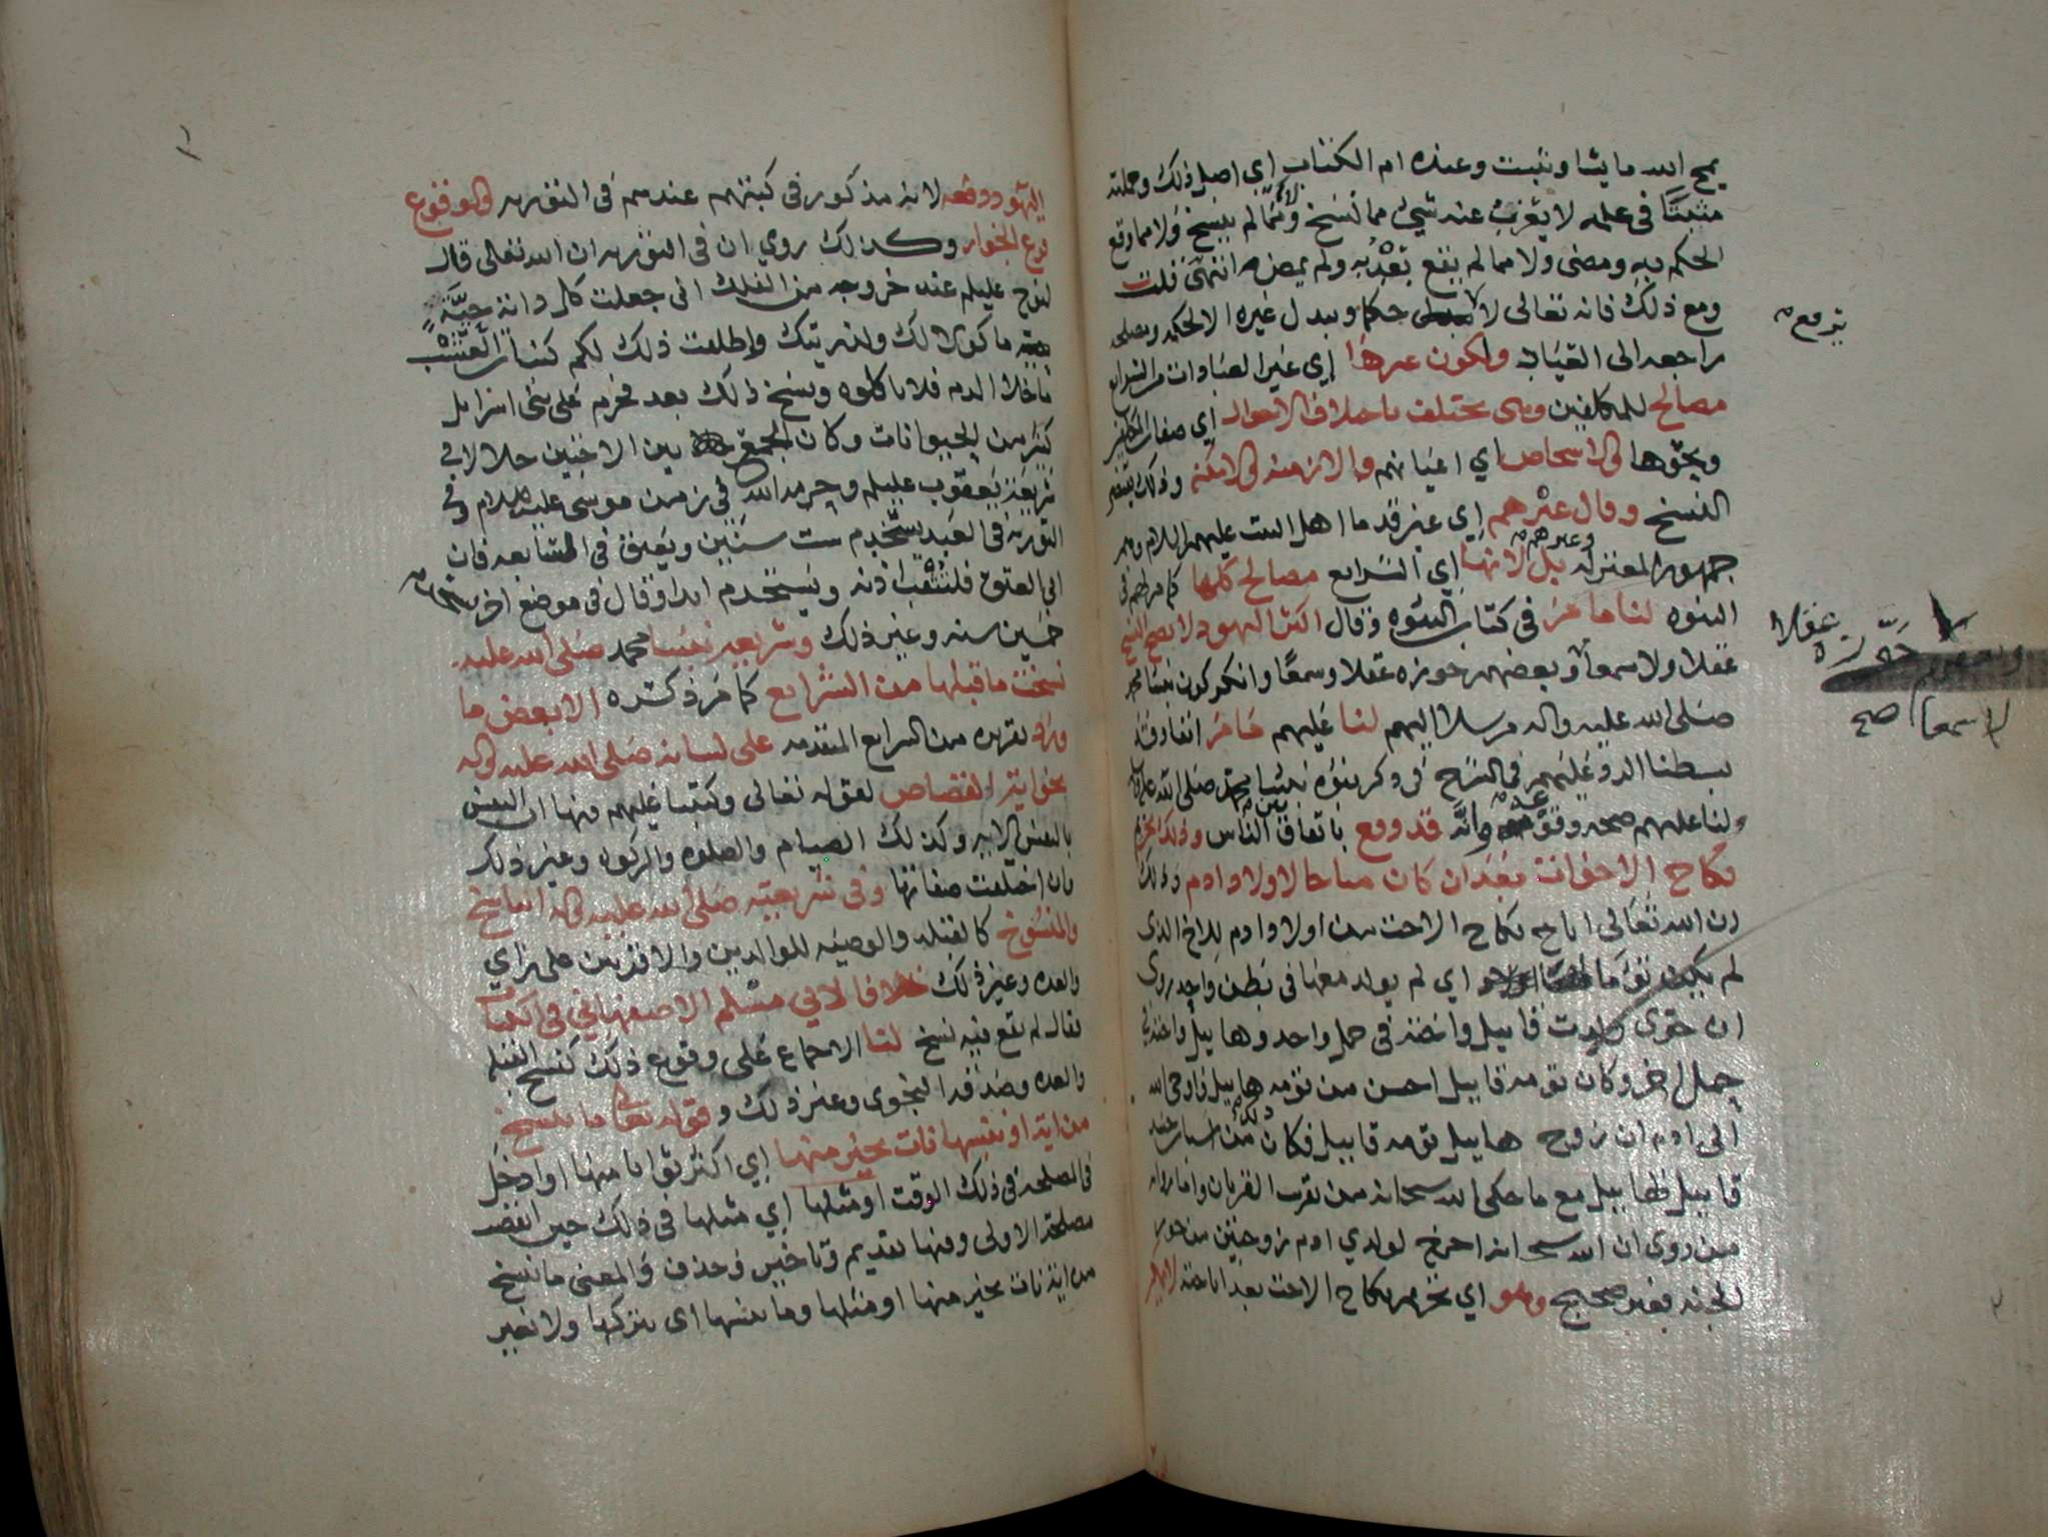 يمح الله ما يشا ويثبت وعنده ام الكتاب اي اصل ذلك وجملته
مثبتًا في علمه لا يعزب عنه شيء مما نسخ ولا مما لم ينسخ ولا مما وقع
الحكم به ومضى ولا مما لم يقع بعد به ولم يمض انتهى قلت
ومع ذلك فانه تعالى لا حكما ويبدل غيره الا لحكمه ومصلحه
يرفع
راجعه الى العباد ولكون غيرها اي غير العبادات من الشرايع
مصالح للمكلفين وهى تختلف باختلاف الاحوال اي صفات المكلفين
ونحوها والاشخاص اي اعيانهم والازمنه والامكنه وذلك يقتضي
النسخ وقال غيرهم اي غير قدما اهل البيت عليهم السلام وهم
جمهور المعتزله وغيرهم بل لانها اي الشرايع مصالح كلها كما مر لهم في
النبوه لنا ما مر في كتاب النبوه وقال اكثر اليهود لا يصح النسخ
عقلا ولا سمعا وبعضهم جوزه عقلا وسمعًا وانكر كون نبينا محمد
جوزه عقلا
لا سمعا صح
صلى الله عليه واله مرسلا اليهم لنا عليهم ما مر انفا وقد
بسطنا الرد عليهم في الشرح في ذكر نبوه نبينا محمد صلى الله عليه واله
ولنا عليهم صحه وقوعه وانه قد وقع باتفاق بين الناس وذلك تحريم
نكاح الاخوات بعد ان كان مباحا لاولاد ادم وذلك
ان الله تعالى اباح نكاح الاخت من اولاد ادم للاخ الذى
لم يكن توما اي لم يولد معها في بطن واحد روى
ان حوى ولدت قابيل واخته في حمل واحد وهابيل واخته في
حمل اخر وكان تومه قابيل احسن من تومه هابيل فاوحى الله
الى ادم ان زوج هابيل تومه قابيل فكان ذلك من اسباب
قابيل لهابيل مع ما حكى الله سبحانه من تقرب القربان واما روايه
من روى ان الله سبحانه اخرج لولدي ادم زوجتين من حور
الجنه فغير صحيح وهو اي تحريم نكاح الاخت بعد اباحته
اليهود ووقعه لانه مذكور في كتبهم عندهم في التوريه والوقوع
فرع الجواز وكذلك روي ان في التوريه ان الله تعالى قال
لنوح عليلم عند خروجه من الفلك اني جعلت كل دابة حيَّةٍ
ماكولا لك ولذريتك واطلقت ذلك لكم كنبات العشب
ما خلا الدم فلا تاكلوه ونسخ ذلك بعد فحرم على بني اسرايل
كثير من الحيوانات وكان الجمع بين الاختين حلالا في
شريعة يعقوب عليلم وحرمه الله في زمن موسى عليه السلام وفي
التوريه في العبد يستخدم ست سنين ويعتق في السابعه فان
ابى العتق فلتثقب اذنه ويستخدم ابدا وقال في موضع اخر
خمسين سنه وغير ذلك وشريعه نبينا محمد صلى الله عليه
نسخت ما قبلها من الشرايع كما مر ذكره الا بعض ما
ورد تقريره من الشرايع المتقدمه على لسانه صلى الله عليه واله
نحو ايه القصاص لقوله تعالى وكتبنا عليهم فيها ان النفس
بالنفس الايه وكذلك الصيام والصلوه والزكوه وغير ذلك
وان اختلفت صفاتها وفي شريعته صلى الله عليه واله الناسخ
والمنسوخ كالقبله والوصيه للوالدين والاقربين على راي
والعده وغير ذلك خلافا لابي مسلم الاصفهاني في
فقال لم يقع فيه نسخ لنا الاجماع على وقوع ذلك كنسخ القبله
والعده وصدقه النجوى وغير ذلك وقوله تعالى ما ننسخ
من ايه او ننسها نات بخير منها اي اكثر ثوابا منها او ادخل
في المصلحه في ذلك الوقت او مثلها اي مثلها في ذلك حين
مصلحه الاولى وفيها تقديم وتاخير وحذف والمعنى ما ننسخ
من ايه نات بخير منها او مثلها وما ننسها اى نتركها ولا نغير